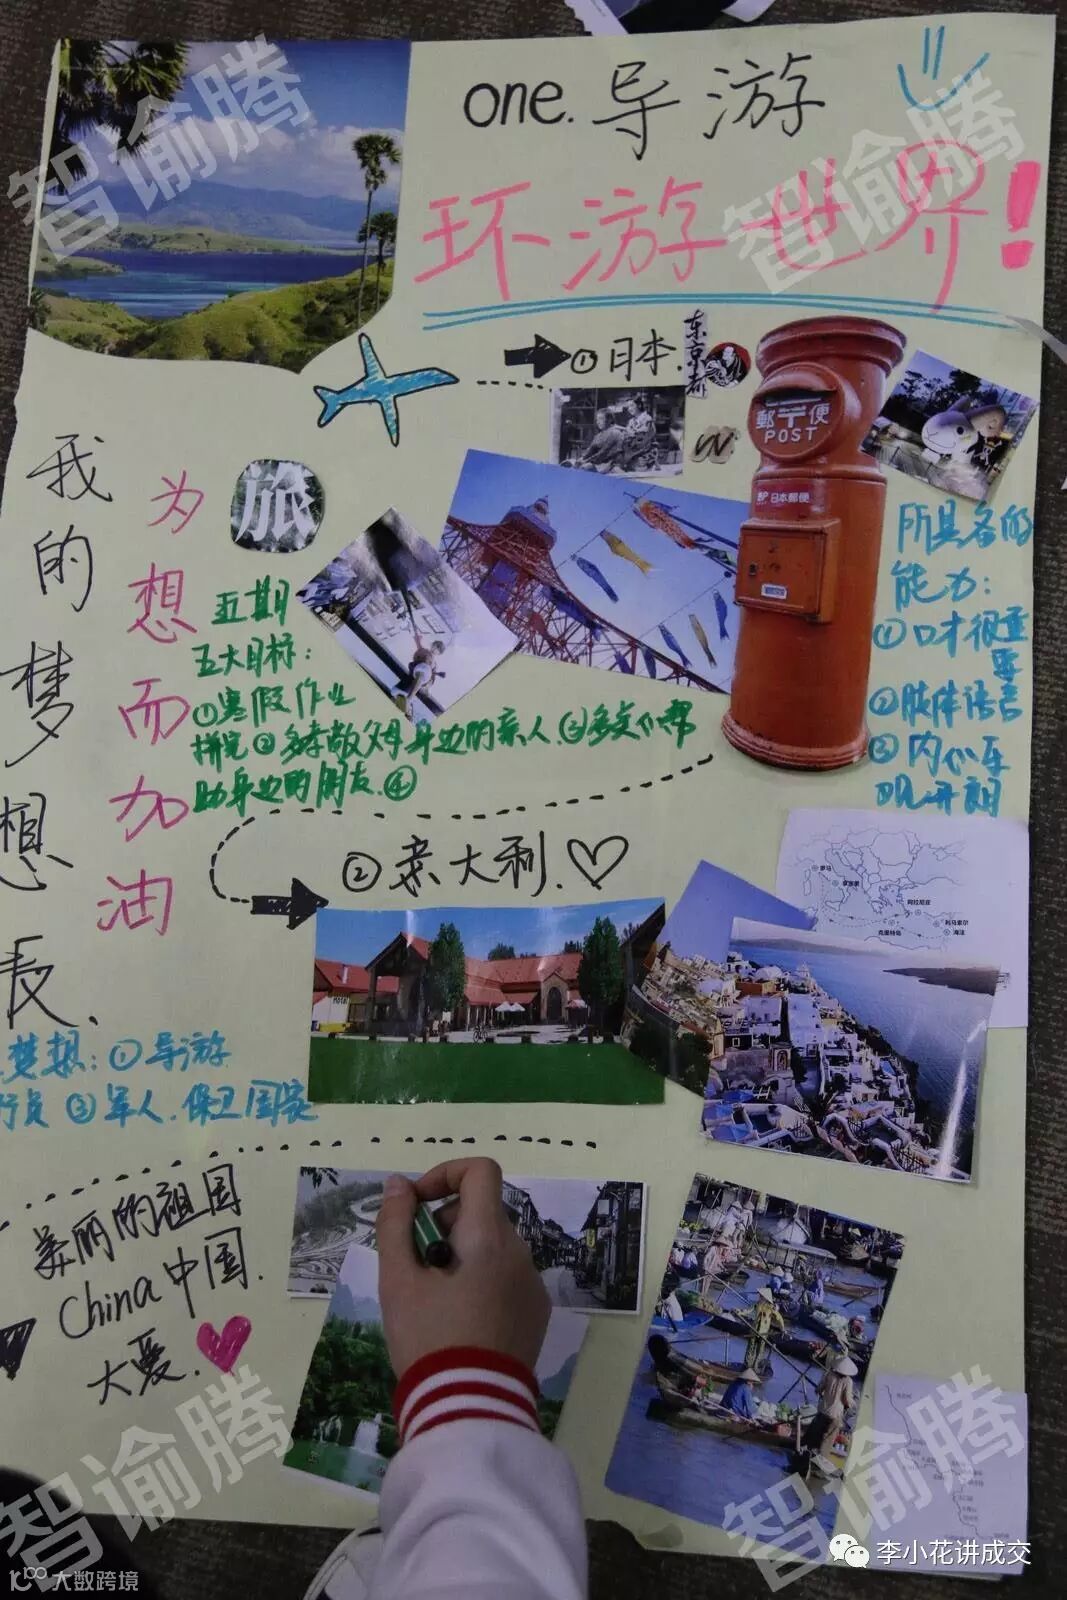 one.导游
环游世界!
①日本.
东京都
郵便
POST
日本郵便
我的梦想
为想而加油
旅
五期
五大目标:
①寒假作业
②多孝敬父母身边的亲人.③多交心帮
助身边的朋友.④
所具备的
能力:
①口才很重
要
②肢体语言
③内心乐
观开朗
②意大利.♡
HOTEL
罗马
克里特岛
利马索尔
海法
长、
梦想:①导游
③军人.保卫国家
美丽的祖国
China中国.
大爱.
智谕腾
智谕腾
智谕腾
智谕腾
李小花讲成交
大数跨境